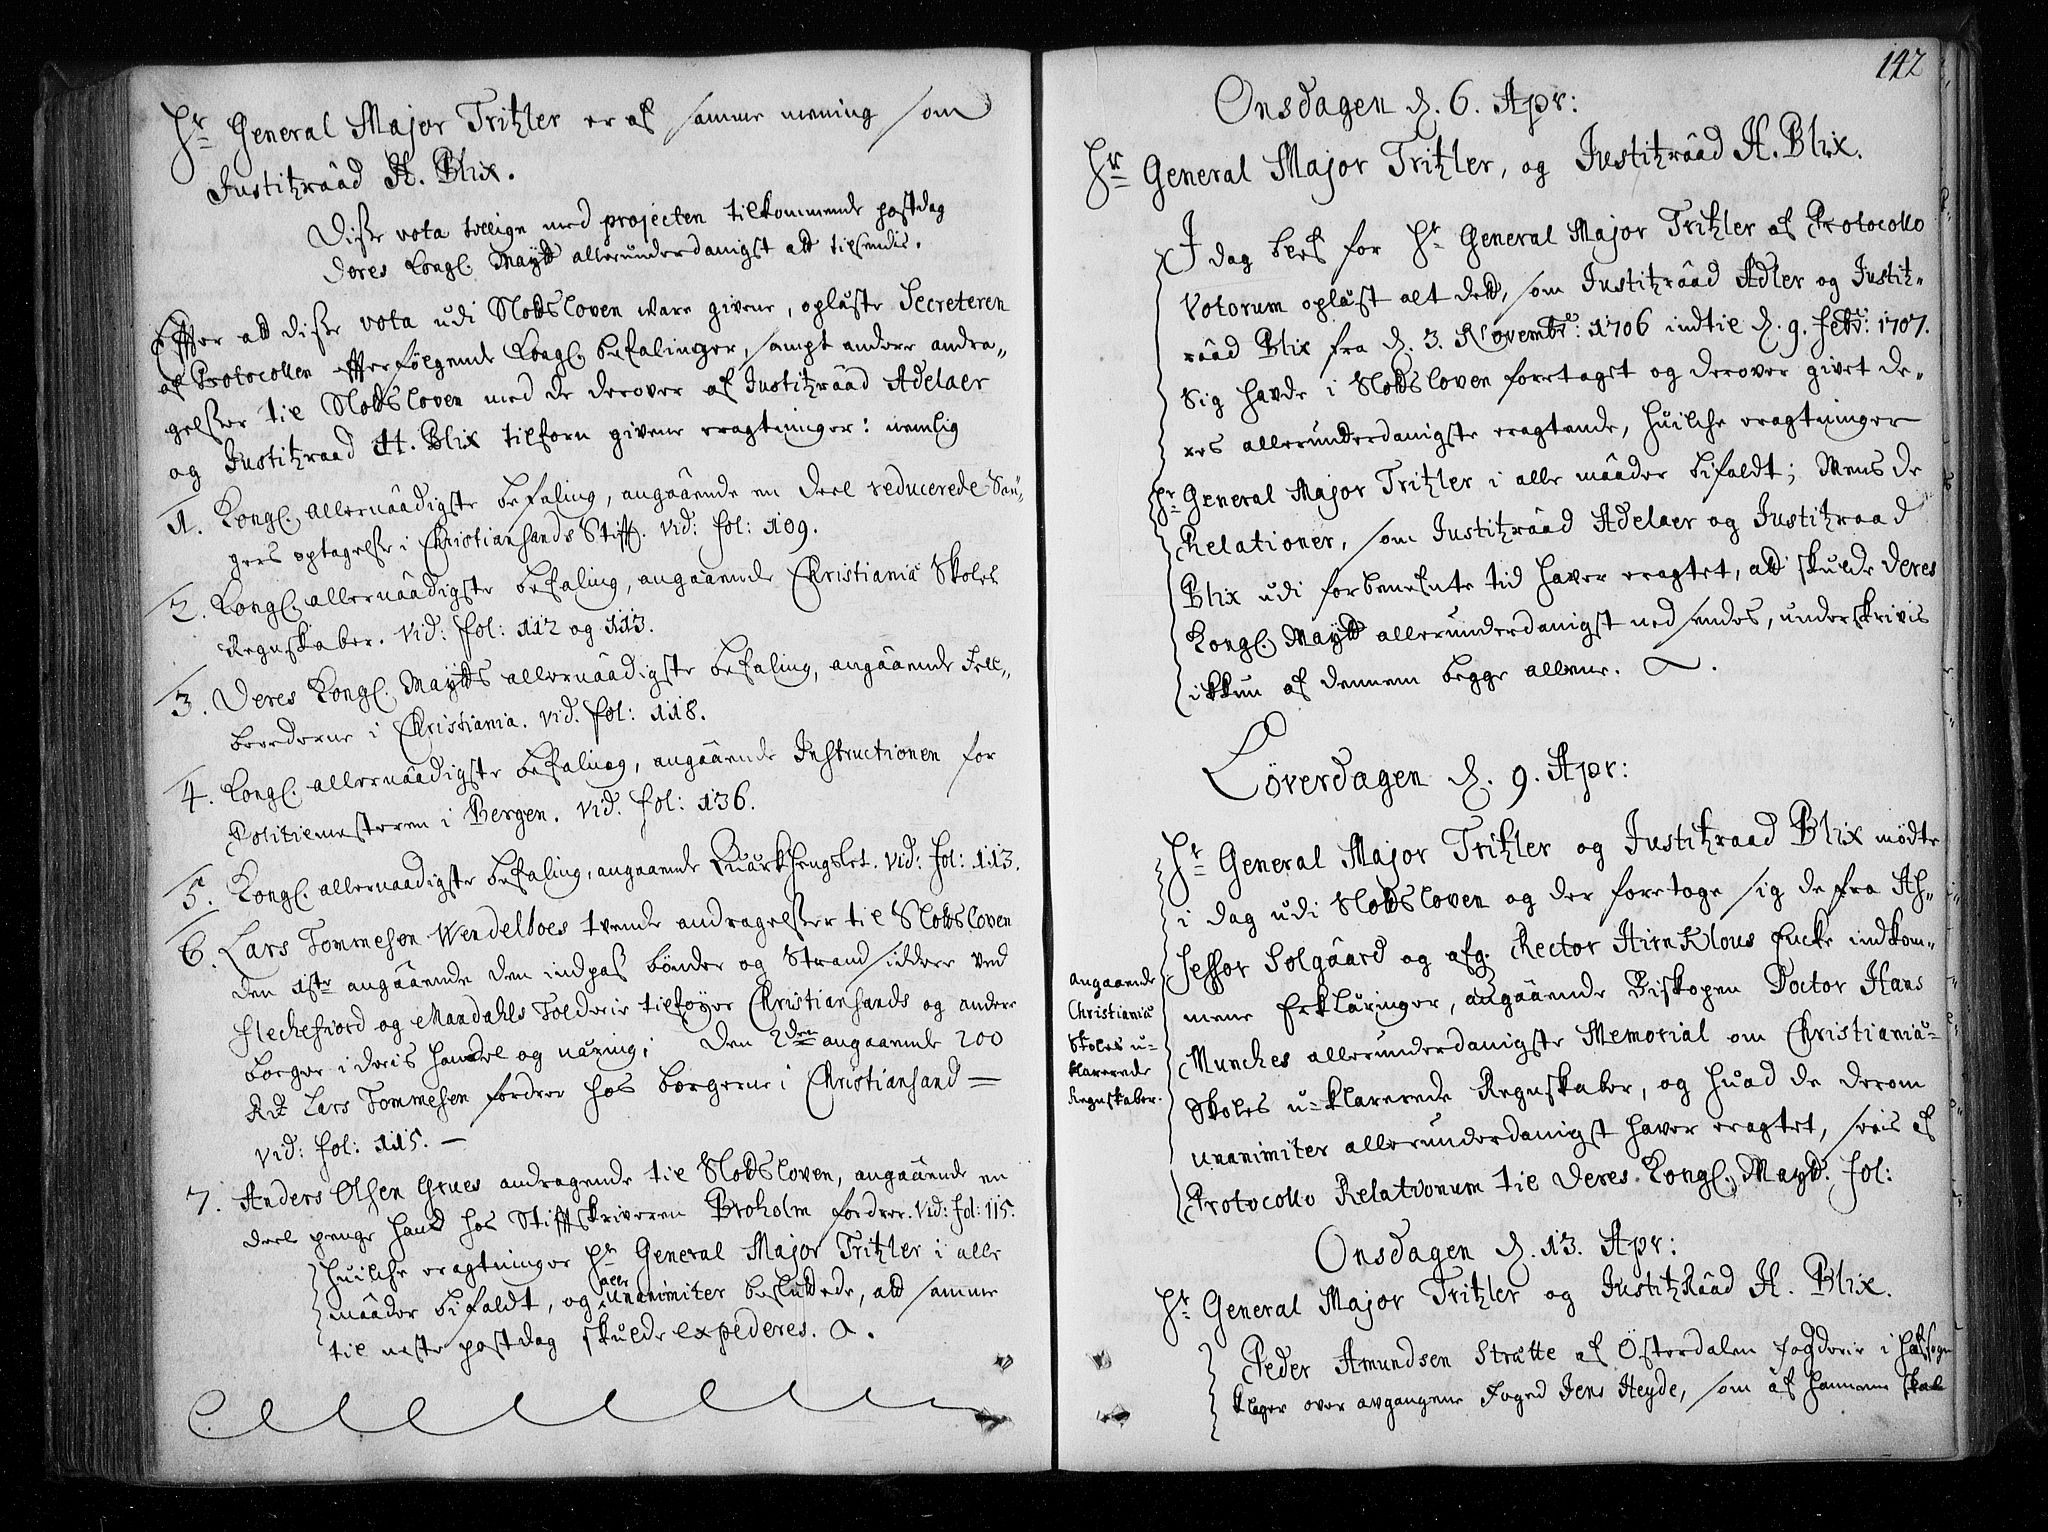 Hr General Major Tritzler er af samme mening som
Justitzraad H. Blix.
Disse vota tillige med projecten tilkommende postdag
deres Kongl. Maytt allerunderdanigst att tilsendis.
Effter att disse vota udi Slottsloven ware givene, oplæste Secreteren
af Protocollen effterfølgende Kongl. befalinger, sampt andere andra„
gelser til Slottsloven med de derover af Justitzraad Adelaer
og Justitzraad H. Blix tilforn givene eragtninger: nemlig
1. Kongl. allernaadigste befaling, angaaende en deel reducerede San„
gers optagelse i Christiansands Stifft. vid: fol: 109.
2. Kongl. allernaadigste befaling, angaaende Christianiæ Skoles
Regnskaber. vid: fol: 112 og 113.
3. Deres Kongl. Maytts allernaadigste befaling, angaaende Fell„
beerderne i Christiania. vid. fol: 118.
4. Kongl. allernaadigste befaling, angaaende Instructionen for
Politiemesteren i Bergen. vid. fol: 136.
5. Kongl. allernaadigste befaling, angaaende Quarkhengslet. vid: fol: 113.
6. Lars Tommesøn Wendelboes tvende andragelser til Slottsloven
den 1ste angaaende den indpas bønder og Strandsiddere ved
Flechefiord og Mandahls Tolderie tilføyer Christiansands og andere
borger i deris handel og næring; Den 2den angaaende 200
Rd Lars Tommesen fordrer hos borgerne i Christiansand —
vid: fol: 115. —
7. Anders Olsen Grues andragende til Slottsloven, angaaende en
deel penge hand hos Stifftskriveren Broholm fordrer. vid: fol: 115.
Huilche eragtninger Hr General Major Tritzler i alle
maader bifaldt, og alle unanimiter besluttede, att samme
til neste postdag skulde expederes.
142
Onsdagen d. 6. Apr:
Hr General Major Tritzler, og Justitzraad H. Blix.
I dag blef for Hr General Major Tritzler af Protocollo
Votorum oplæst alt dett, som Justitzraad Adler og Justitz„
raad Blix fra d. 3. Novembr: 1706 indtil d. 9. febr: 1707.
Sig havde i Slottsloven foretaget og derover givet de„
res allerunderdanigste eragtende, huilche eragtninger
Hr General Major Tritzler i alle maader bifaldt; Mens de
Relationer, som Justitzraad Adelaer og Justitzraad
Blix udi forbenefnte tid haver eragtet, att skulde deres
Kongl. Maytt allerunderdanigst nedsendes, underskrivis
ikkun af dennem begge allene.
Löverdagen d. 9. Apr:
Hr General Major Tritzler og Justitzraad Blix mödte
i dag udi Slottsloven og der foretoge sig de fra As„
sessor Solgaard og afg. Rector Hirnklous Encke indkom„
mene Erklæringer, angaaende Biskopen Doctor Hans
Munches allerunderdanigste Memorial om Christianiæ
Skoles u-klarerede Regnskaber, og huad de derom
unanimiter allerunderdanigst haver eragtet, sees af
Protocollo Relationum til Deres Kongl. Maytt. fol:
Angaaende
Christianiæ
Skoles u-
klarerede
Regnskaber.
Onsdagen d. 13. Apr:
Hr General Major Tritzler og JustitzRaad H. Blix.
Peder Amundsen Stræte af Österdalen fogderie i
klager over avgangene Foged Jens Heyde, som af hannem skal